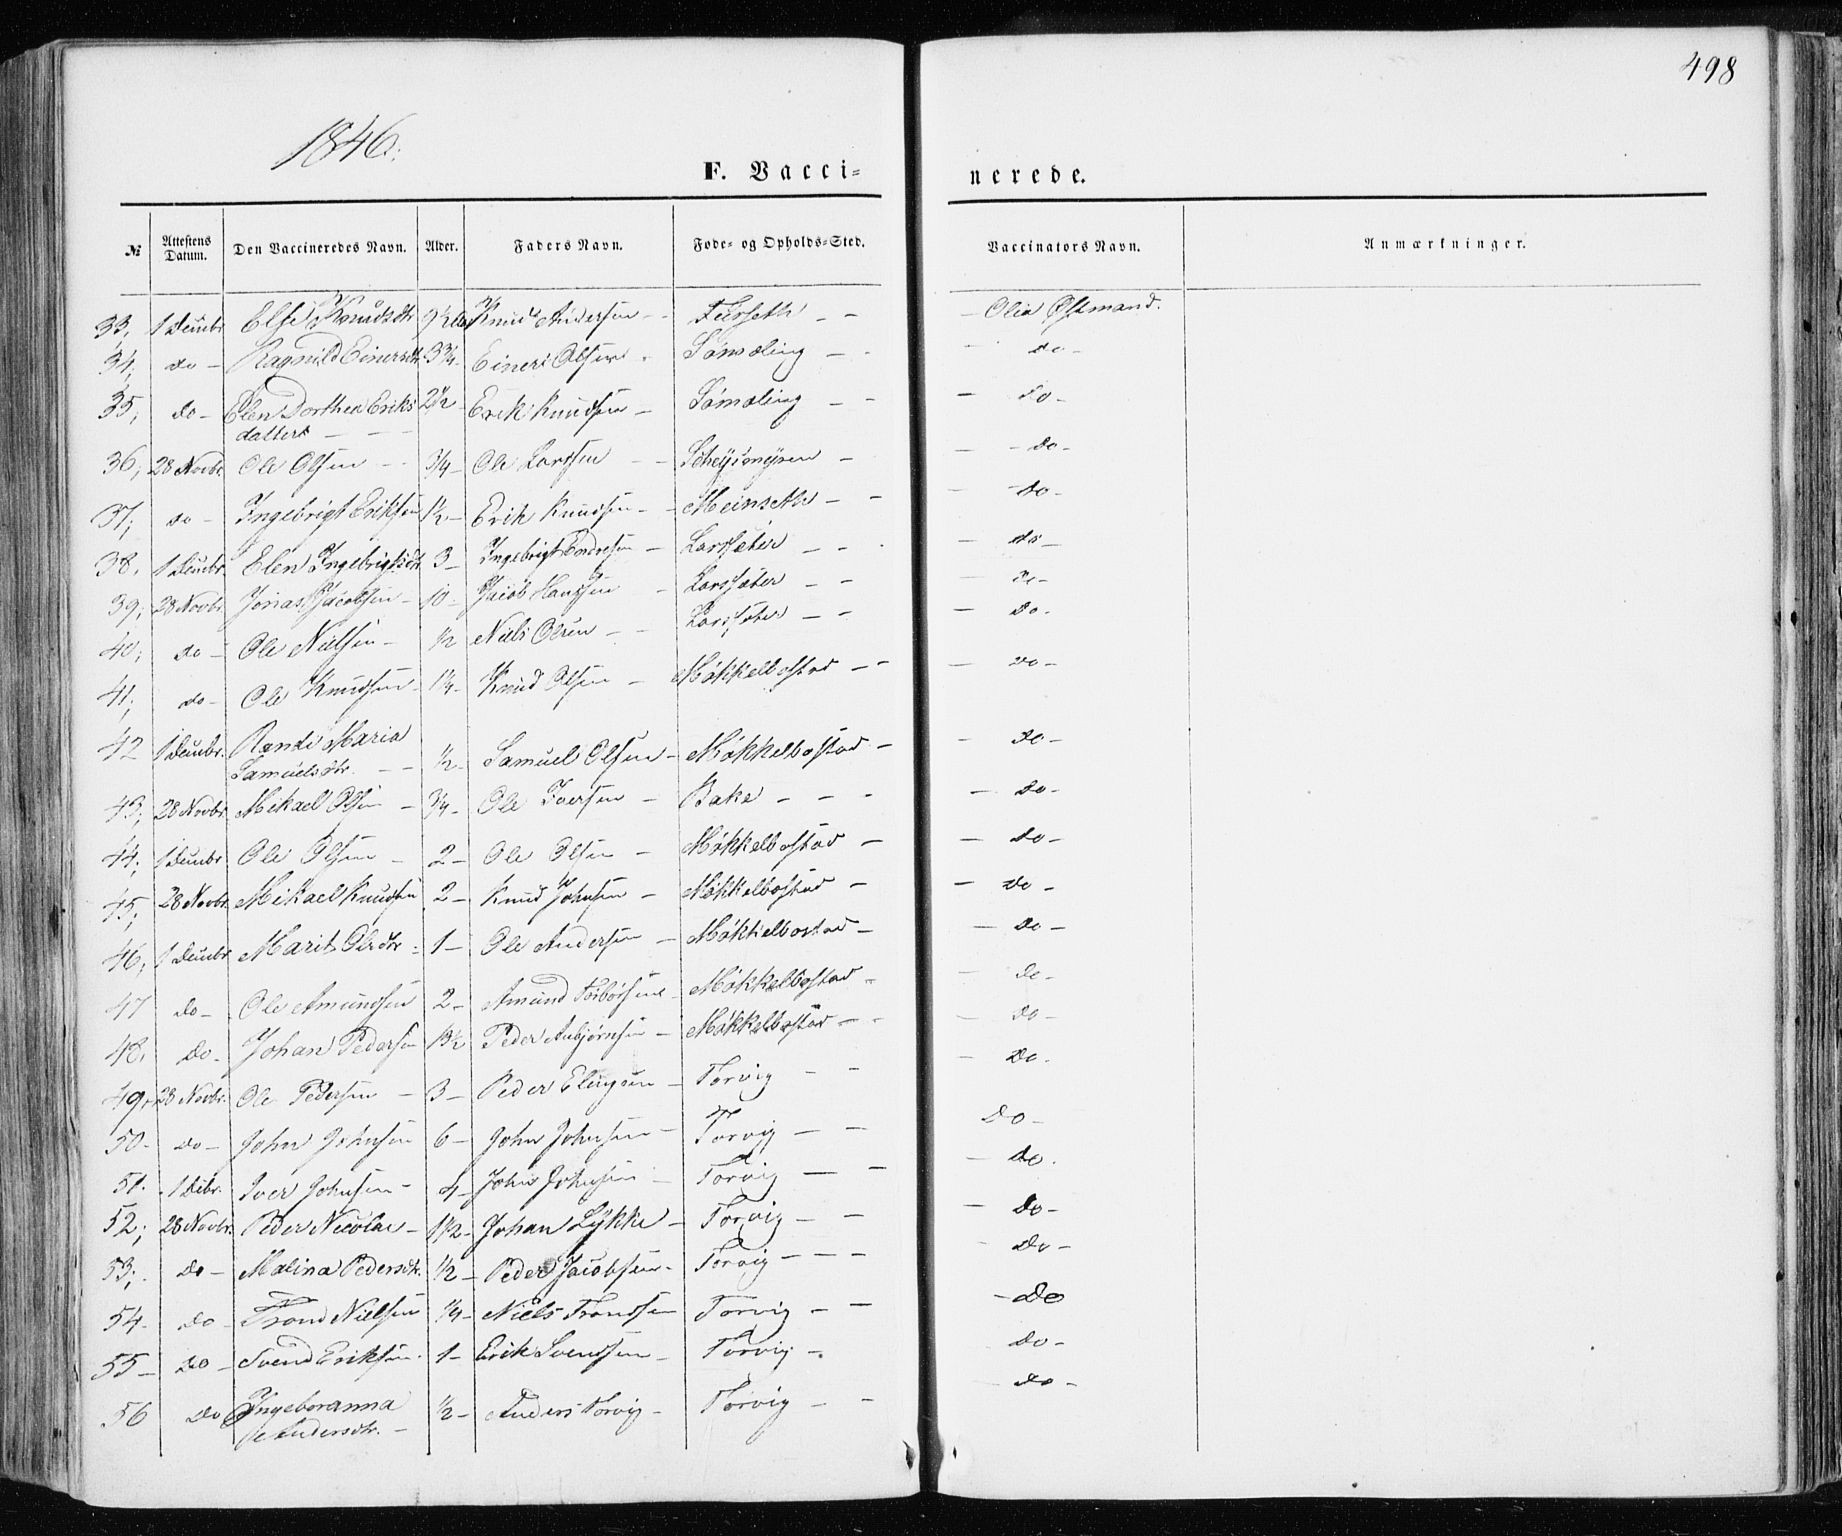 498
1846.
F. Vacci= nerede.
№ Attestens Datum. Den Vaccineredes Navn. Alder. Faders Navn. Føde- og Opholds-Sted. Vaccinators Navn. Anmærkninger.
33, 1 Decmbr Else Knudsdtr 9½ Knud Andersen - Furseth - - - Olia Østmand.
34, do - Ragnild Einersdtr 3¾ - Einert Olsen - Sømæling - - - do -
35, do - Elen Dorthea Eriks 2½ - Erik Knudsen - Sømæling - - - do -
datter - - -
36, 28 Novbr Ole Olsen - - ¾ - Ole Larssen - - - - do -
37, do - Ingebrigt Eriksen 1½ - Erik Knudsen - - Meinseth - - - do -
38. 1 Decmbr. Elen Ingebrigtsdtr 3 - Ingebrigt Endresen - Larssæter - - - do -
39, 28 Novbr. Jonas Jacobsen - 10 - Jacob Hanssen - Larssæter - - - do -
40, do - Ole Nielsen - ½ Niels Olsen - - Larssæter - - - do -
41, do - Ole Knudsen - 1¼ - Knud Olsen - Møkkelbostad - - - do -
42 1 Decmbr. Rande Maria
Samuelsdtr. - - ½ - Samuel Olsen - Møkkelbostad - - do -
43, 28 Novbr. Mikael Olsen - ¾ - Ole Iversen - Bake - - - - do -
44, 1 Decmbr Ole Olsen - 2 - Ole Olsen - Møkkelbostad - - do -
45, 28 Novbr. Mikael Knudsen 2 - Knud Johnsen - Møkkelbostad - - do -
46, 1 Decmbr Marit Olsdtr - 1 - Ole Andersen - Møkkelbostad - - do -
47 do - Ole Amundsen 2 - Amund Torbørsen - Møkkelbostad - - do -
48. do - Johan Pedersen 13½ Peder Anbjørnsen - Møkkelbostad - - - do -
49. 28 Novbr. Ole Pedersen - 3 - Peder Elingsen - Torvig - - - do.
50. do - John Johnsen 6 - John Johnsen - Torvig - - do -
51. 1 Debr. Iver Johnsen - 4 - John Johnsen - Torvig - - - do.
52, 28 Novbr. Peder Nicolai - 1½ - Johan Lykke - Torvig - - - do -
53, do - Malina Pedersdtr. ½ - Peder Jacobsen - Torvig - - - - do -
54. do - Trond Nielsen ¼ - Niels Trondsen Torvig - - - do
55 - do - Svend Eriksen - 1 - Erik Svendsen - Torvig - - do -
56 do Ingeboranna
Andersdtr. - ½ - Anders Torvig - Torvig - - - do -